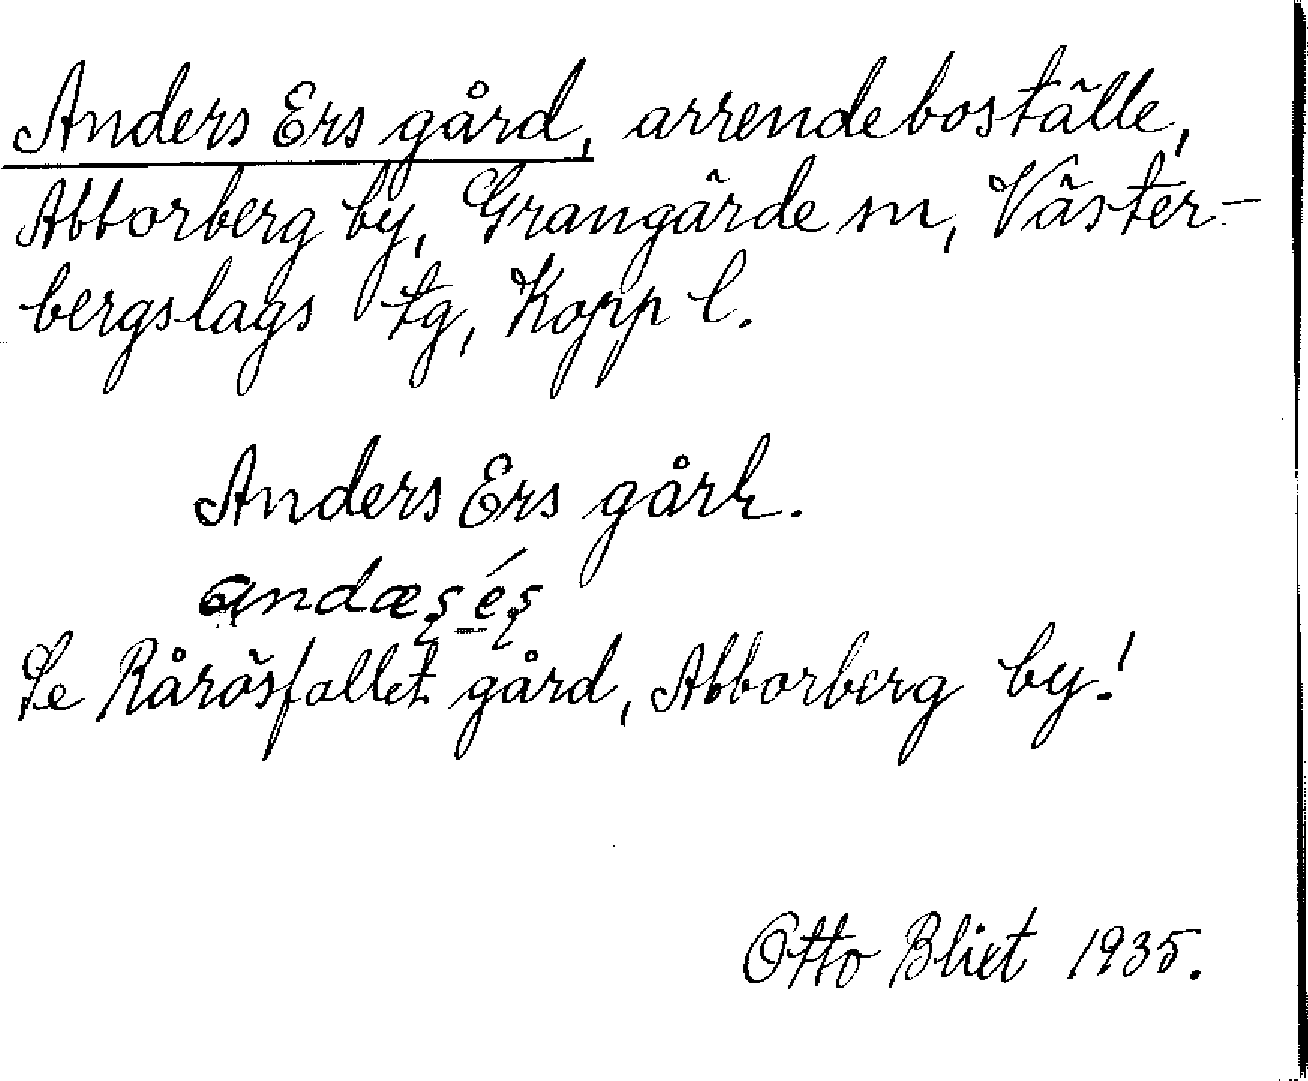 Anders Ers gård, arrendeboställe,
Abborberg by, Grangärde sn, Väster-
bergslags tg, Kopp l.
Anders Ers gårk.
andæʂ éʂ
Se Råråsfallet gård, Abborberg by!
Otto Blixt 1935.